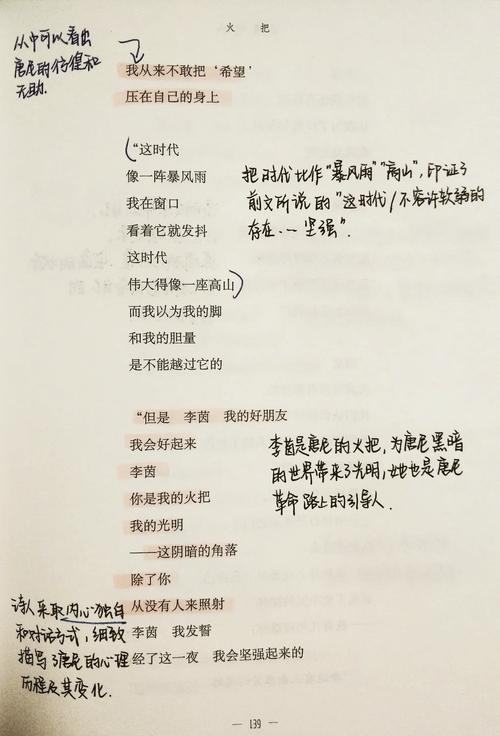 火 把
从中可以看出
唐尼的彷徨和
无助.
我从来不敢把‘希望’
压在自己的身上
“这时代
像一阵暴风雨
我在窗口
看着它就发抖
这时代
伟大得像一座高山
而我以为我的脚
和我的胆量
是不能越过它的
把时代比作“暴风雨”“高山”,印证了
前文所说的“这时代/不容许软弱的
存在...坚强”.
“但是 李茵 我的好朋友
我会好起来
李茵
你是我的火把
我的光明
——这阴暗的角落
除了你
从没有人来照射
李茵 我发誓
经了这一夜 我会坚强起来的
李茵是唐尼的火把,为唐尼黑暗
的世界带来了光明,她也是唐尼
革命路上的引导人.
诗人采取内心独白
和对话方式,细致
描写了唐尼的心理
历程及其变化.
— 139 —